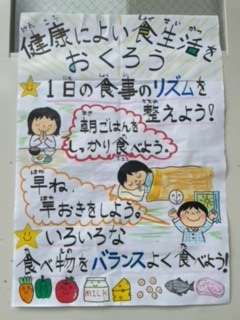 健康によい食生活を
おくろう
1日の食事のリズムを
整えよう!
朝ごはんを
しっかり食べよう。
早ね、
早おきをしよう。
いろいろな
食べ物をバランスよく食べよう!
MILK